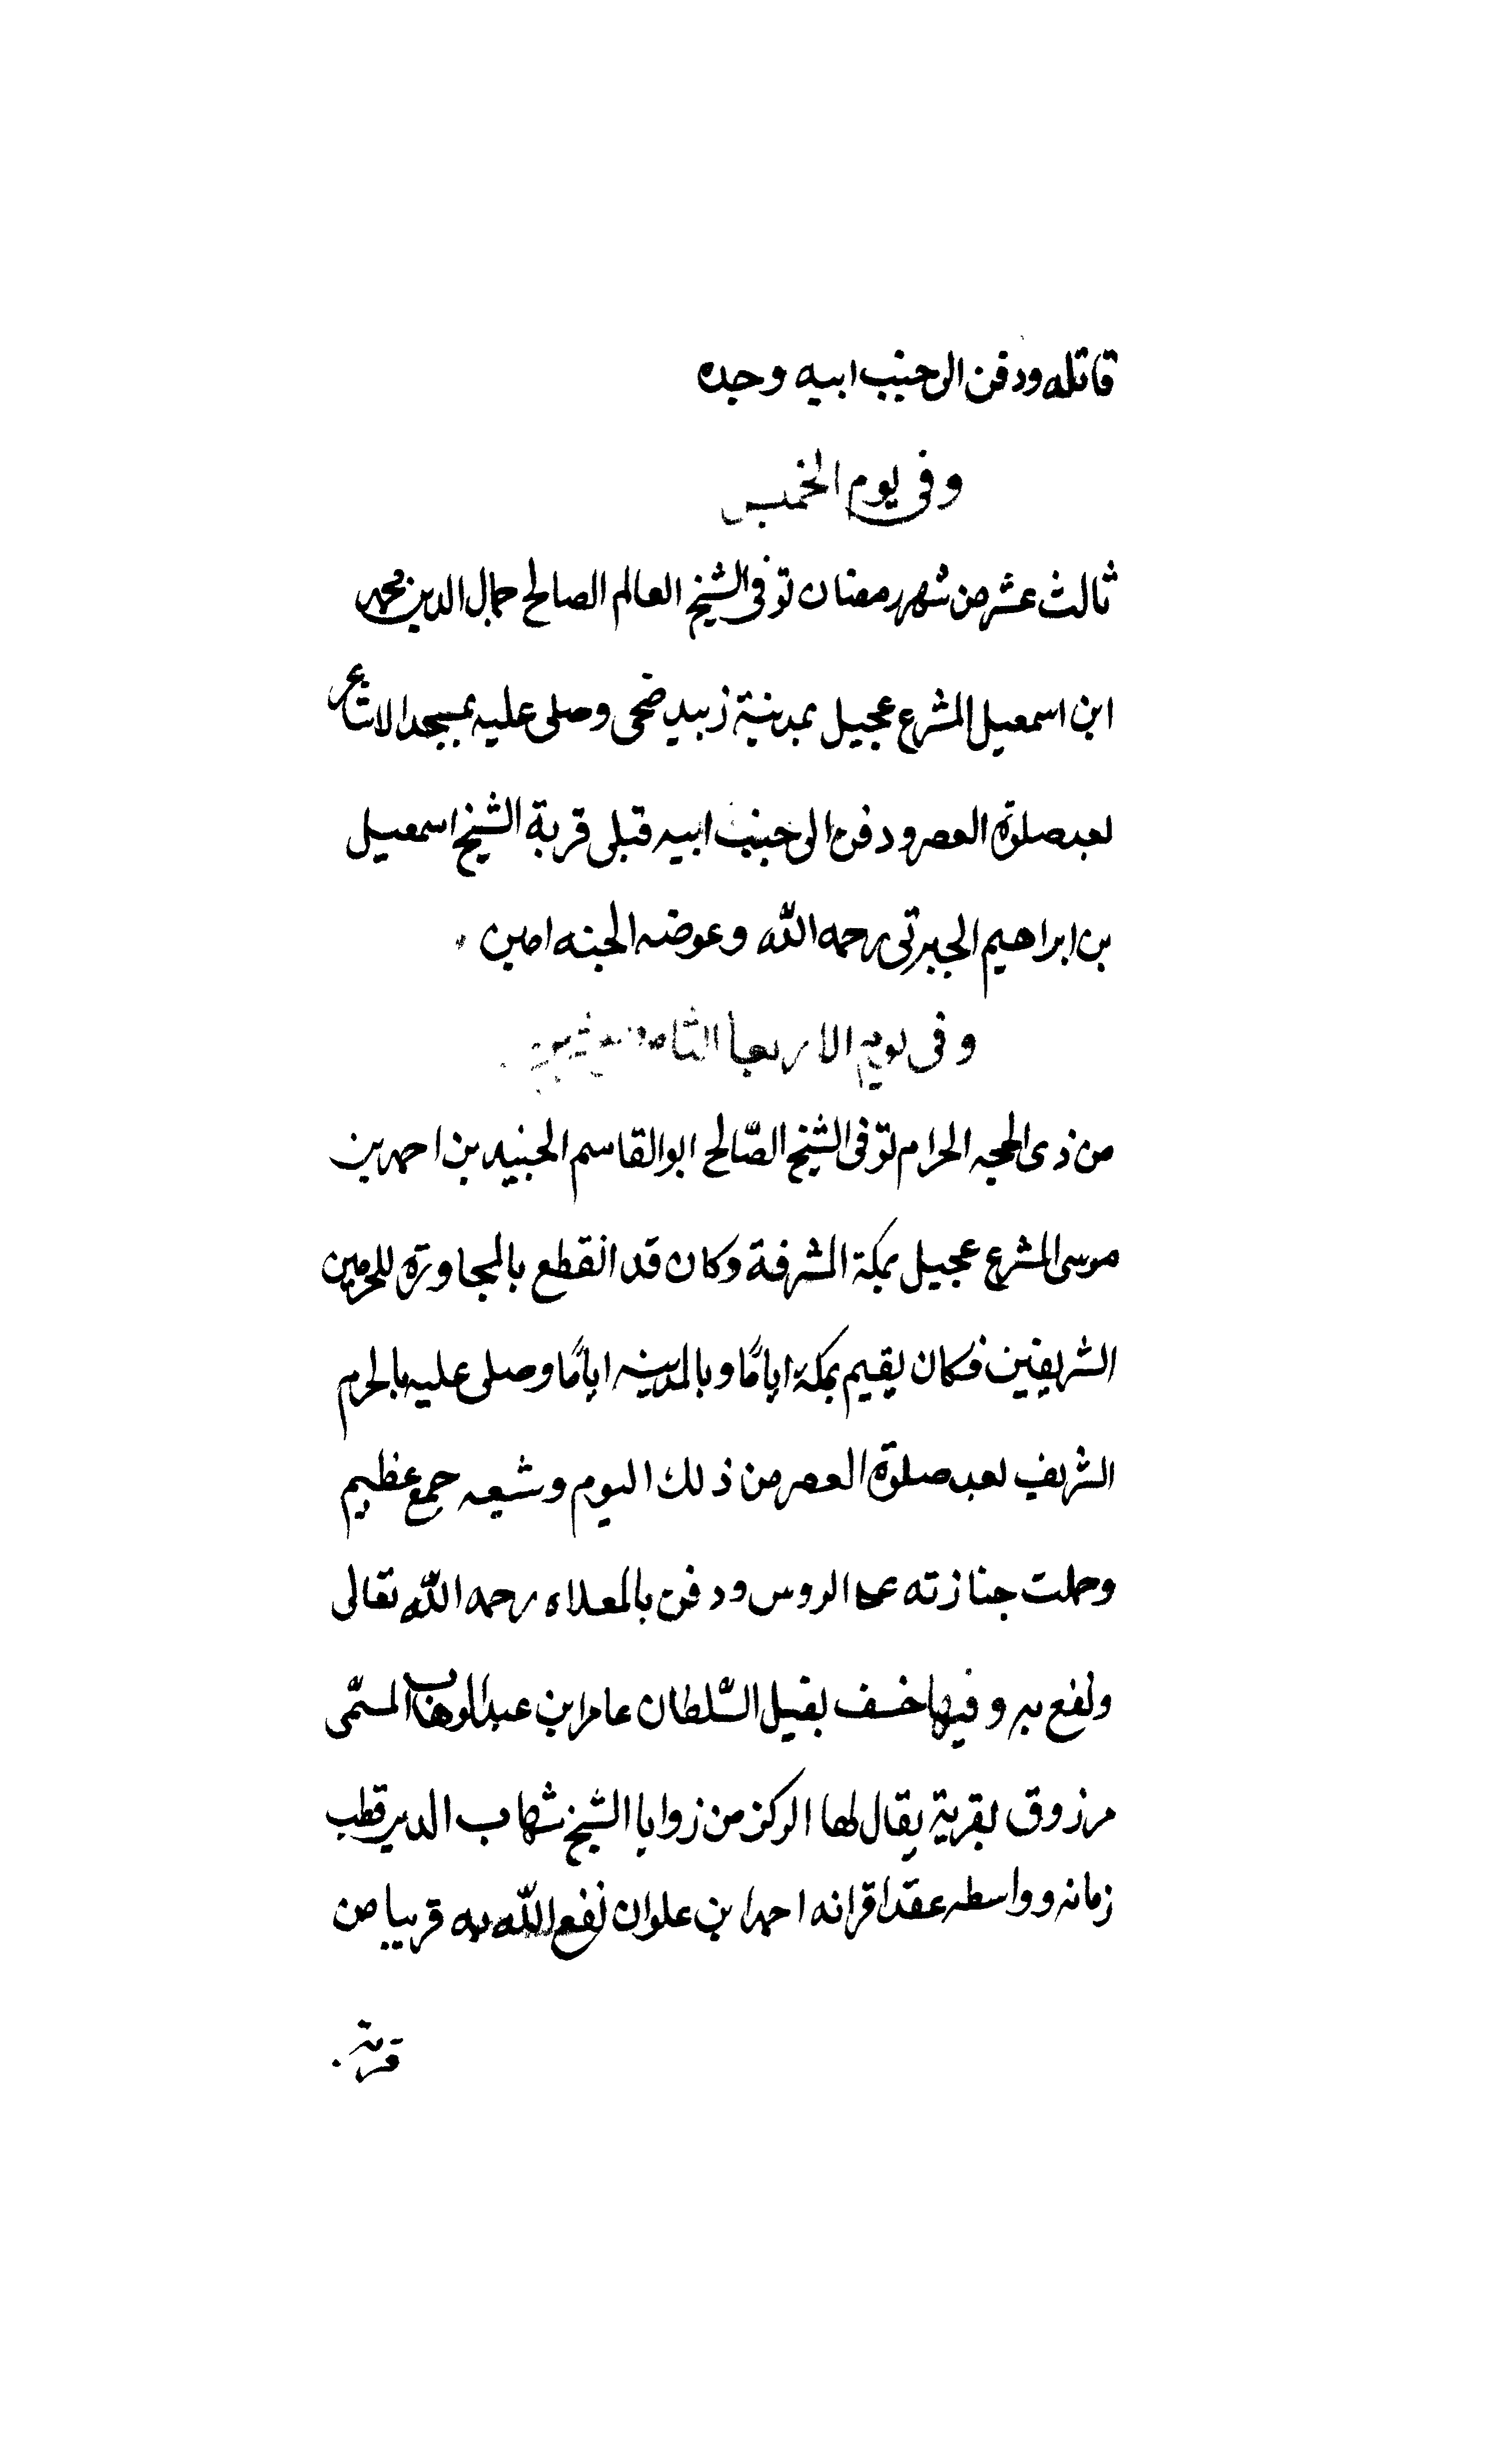 قاتله ودفن الى جنب ابيه وجده
وفى يوم الخميس
ثالث عشر من شهر رمضان توفى الشيخ العالم الصالح جمال الدين محمد
ابن اسمعيل المشرع عجيل بمدينة زبيد ضحى وصلى عليه بمسجد الاشاعر
بعد صلوة العصر ودفن الى جنب ابيه قبلى قربة الشيخ اسمعيل
بن ابراهيم الجبرتى رحمه الله وعوضه الجنه امين
وفى يوم الاربعا الثامن
من ذى الحجه الحرام توفى الشيخ الصّالح ابو القاسم الجنيد بن احمد بن
موسى المشرع عجيل بمكة المشرفة وكان قد انقطع بالمجاورة للحرمين
الشريفين فكان يقيم بمكة ايامًا وبالمدينه ايامًا وصلى عليه بالحرم
الشريف بعد صلوة العصر من ذلك اليوم وشيعه جمع عظيم
وحملت جنازته على الروس ودفن بالمعلاه رحمه الله تعالى
ونفع به وفيها خسف بفيل السّلطان عامر ابن عبد الوهاب المسمّى
مرزوق بقرية يقال لها الركز من زوايا الشيخ شهاب الدين قطب
زمانه وواسطه عقد اقرانه احمد ابن علوان نفع الله به قريبا من
قرية